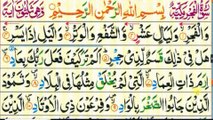 سُوْرَةُ الْفَجْرِ مَكِّيَّةٌ بِسْمِ اللّٰهِ الرَّحْمٰنِ الرَّحِيْمِ
وَالْفَجْرِ وَلَيَالٍ عَشْرٍ وَّالشَّفْعِ وَالْوَتْرِ وَالَّيْلِ اِذَا يَسْرِ
هَلْ فِيْ ذٰلِكَ قَسَمٌ لِّذِيْ
اِرَمَ ذَاتِ الْعِمَادِ الَّتِيْ لَمْ يُخْلَقْ مِثْلُهَا فِي الْبِلَادِ وَثَمُوْدَ
الَّذِيْنَ جَابُوا الصَّخْرَ بِالْوَادِ وَفِرْعَوْنَ ذِي الْاَوْتَادِ الَّذِيْنَ